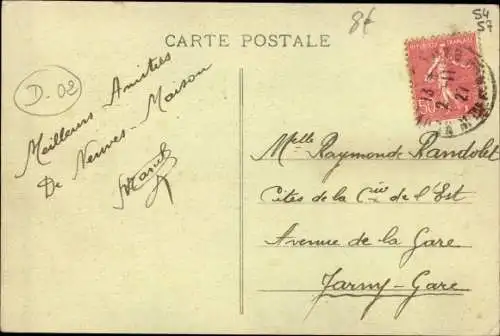 8€
54
57
CARTE POSTALE
D-02
Meilleurs Amitiés
De Neuves-Maison
REPUBLIQUE FRANÇAISE
50
Melle Raymonde Randolet
Cités de la Cie de l'Est
Avenue de la Gare
Jarny-Gare